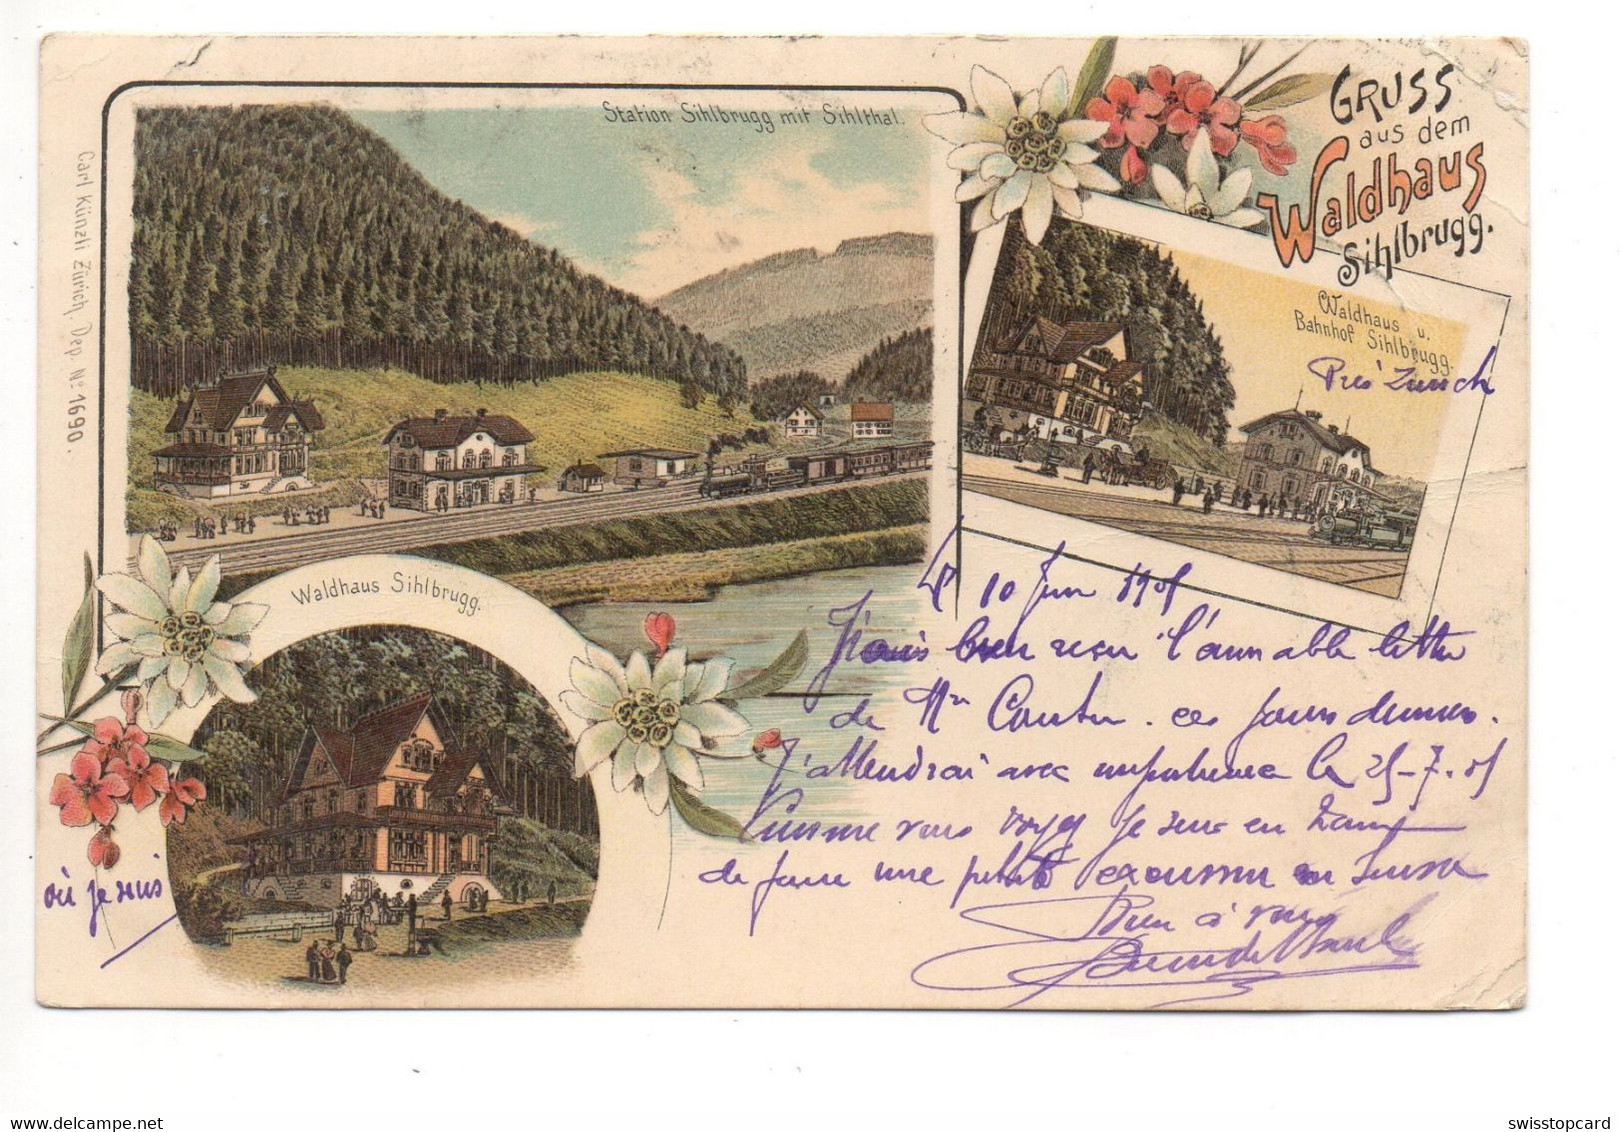 Station Sihlbrugg mit Sihlthal.
GRUSS
aus dem
Waldhaus
Sihlbrugg.
Waldhaus u.
Bahnhof Sihlbrugg.
Près Zurich
Carl Künzli Zürich, Dep. No: 1690.
Waldhaus Sihlbrugg.
Le 10 Juin 1905
J'avais bien reçu l'aimable lettre
de Mr ces jours derniers.
J'attendrai avec impatience le 25-7-05
Comme vous voyez je suis en train
de faire une petite excursion en Suisse
Bien à vous
où je suis
swisstopcard